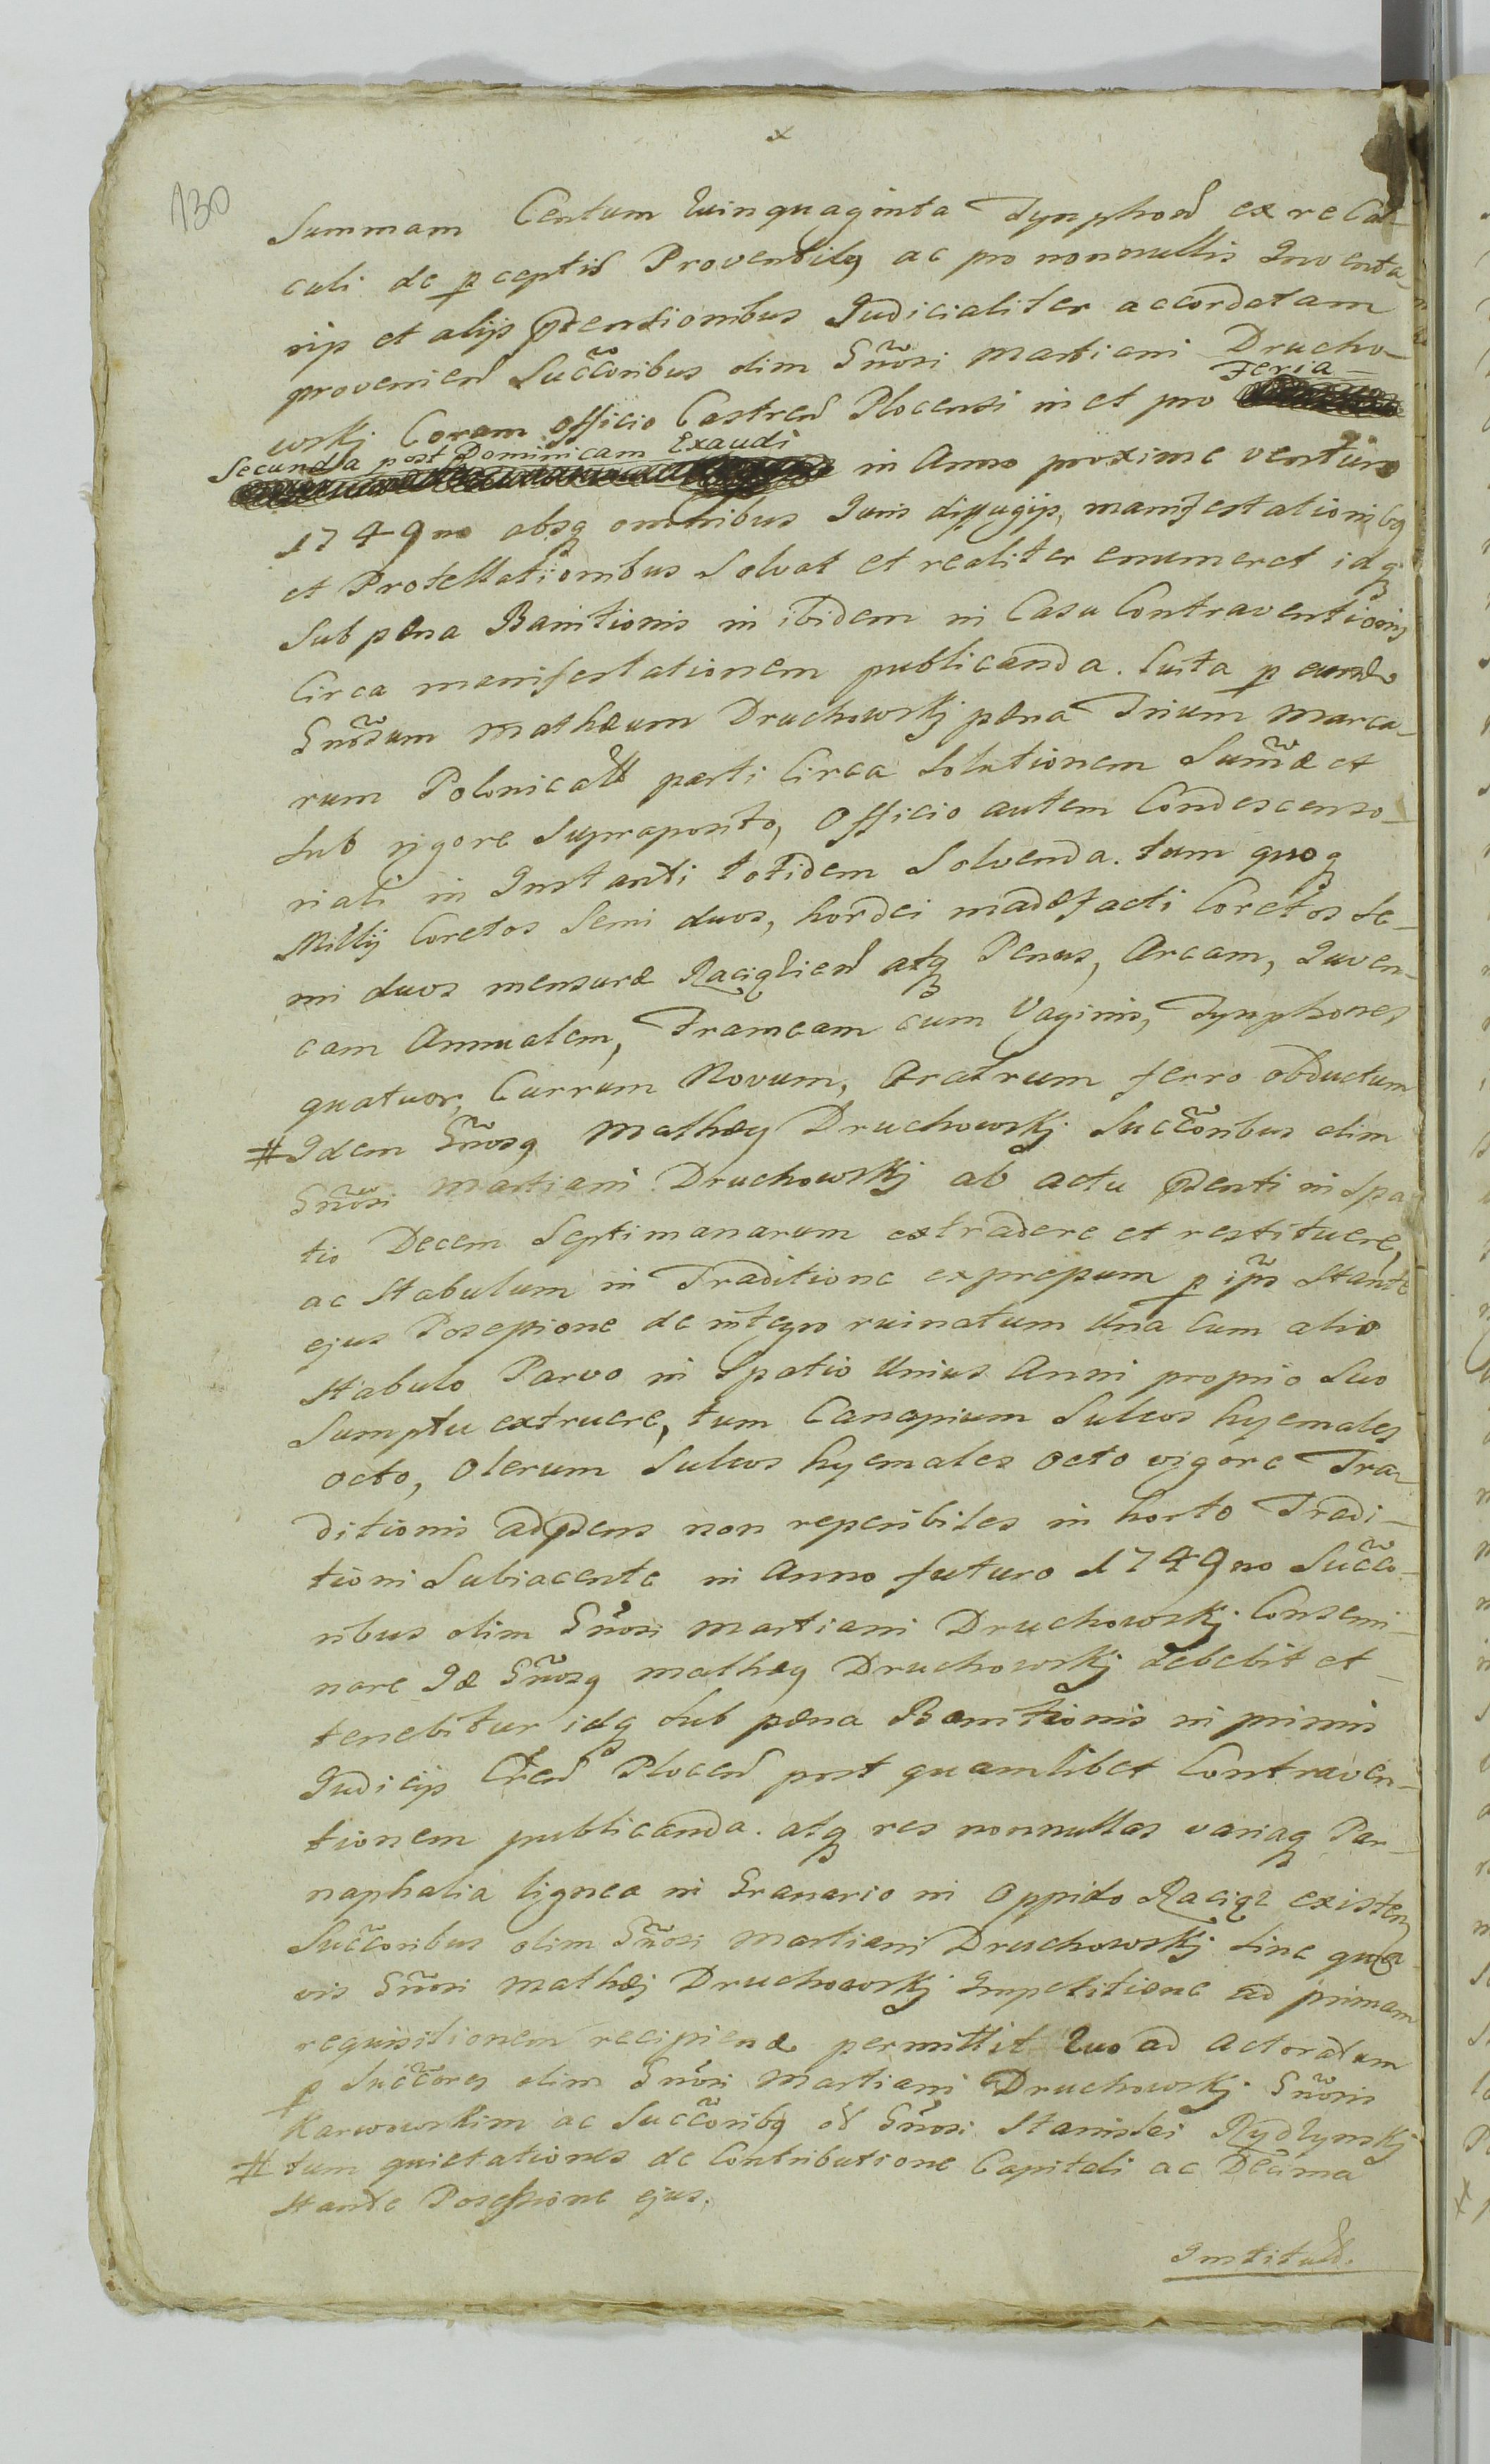 x
130
Summam Centum Quinquaginta Tynphoñ ex re Cal-
culi de p ceptis Proventibq ac pro nonnullis Inventa-
rijs et alijs pdensionibus Judicialiter accordatam
provenieñ Succoribus olim Gnosi Martiani Drucho-
wskj Coram Officio Castreñ Plocensi in et pro Feria
Secunda post Dominicam Exaudi in Anno proxime venturo
1749no absq omnibus Juris diffugijs, manifestationibq
et Protestationibus Solvat et realiter enumeret idq
Sub pæna Banitionis in ibidem in Casu Contraventionis
Circa manifestationem publicanda. Luita p eund
Gnosum Mathæum Druchowskj pæna Trium Marca-
rum Polonicał parti Circa Solutionem Summæ et
Sub rigore Supraposito, Officio autem Condescenso-
riali in Instanti totidem Solvenda. tum quoq
Millij Coretos Semi duos, hordei madefacti Coretos Se-
mi duos mensuræ Raciążieñ atq Penus, Arcam, Juven-
cam Annualem, Frameam cum Vaginis, Tynphones
quatuor, Currum Novum, Aratrum ferro obductum
# Idem Gnosq Mathæq Druchowskj Succoribus olim
Gnosi Martiani Druchowskj ab actu pdenti in Spa-
tio Decem Septimanarum extradere et restituere,
ac Stabulum in Traditione expressum p ips Stante
ejus Possessione de integro ruinatum Una Cum alio
Stabulo Parvo in Spatio Unius Anni proprio Suo
Sumptu extruere, tum Canapium Sulcos hyemales
octo, Olerum Sulcos hyemales octo vigore Tra-
ditionis adpdens non reperibiles in horto Tradi-
tioni Subiacente in Anno futuro 1749no Succo-
ribus olim Gnosi Martiani Druchowskj Consemi-
nare Id Gnosq Mathæq Druchowskj debebit et
tenebitur idq Sub pæna Banitionis in primis
Judicijs Ctreñ Ploceñ post quamlibet Contraven-
tionem publicanda. atq res nonnullas variaq Par-
naphalia lignea in Granario in Oppido Raciąż existen
Succoribus olim Gnosi Martiani Druchowskj Sine qua-
vis Gnosi Mathæj Druchowskj Impetitione ad primam
requisitionem recipiend permittit Quo ad Actoratum
p Succores olim Gnosi Martiani Druchowskj Gnosis
Karwowskim ac Succoribq ol Gnosi Stanislai Rydzynskj
# tum quietationes de Contributione Capitali ac Decima
Stante Possessione ejus.
Instituł.